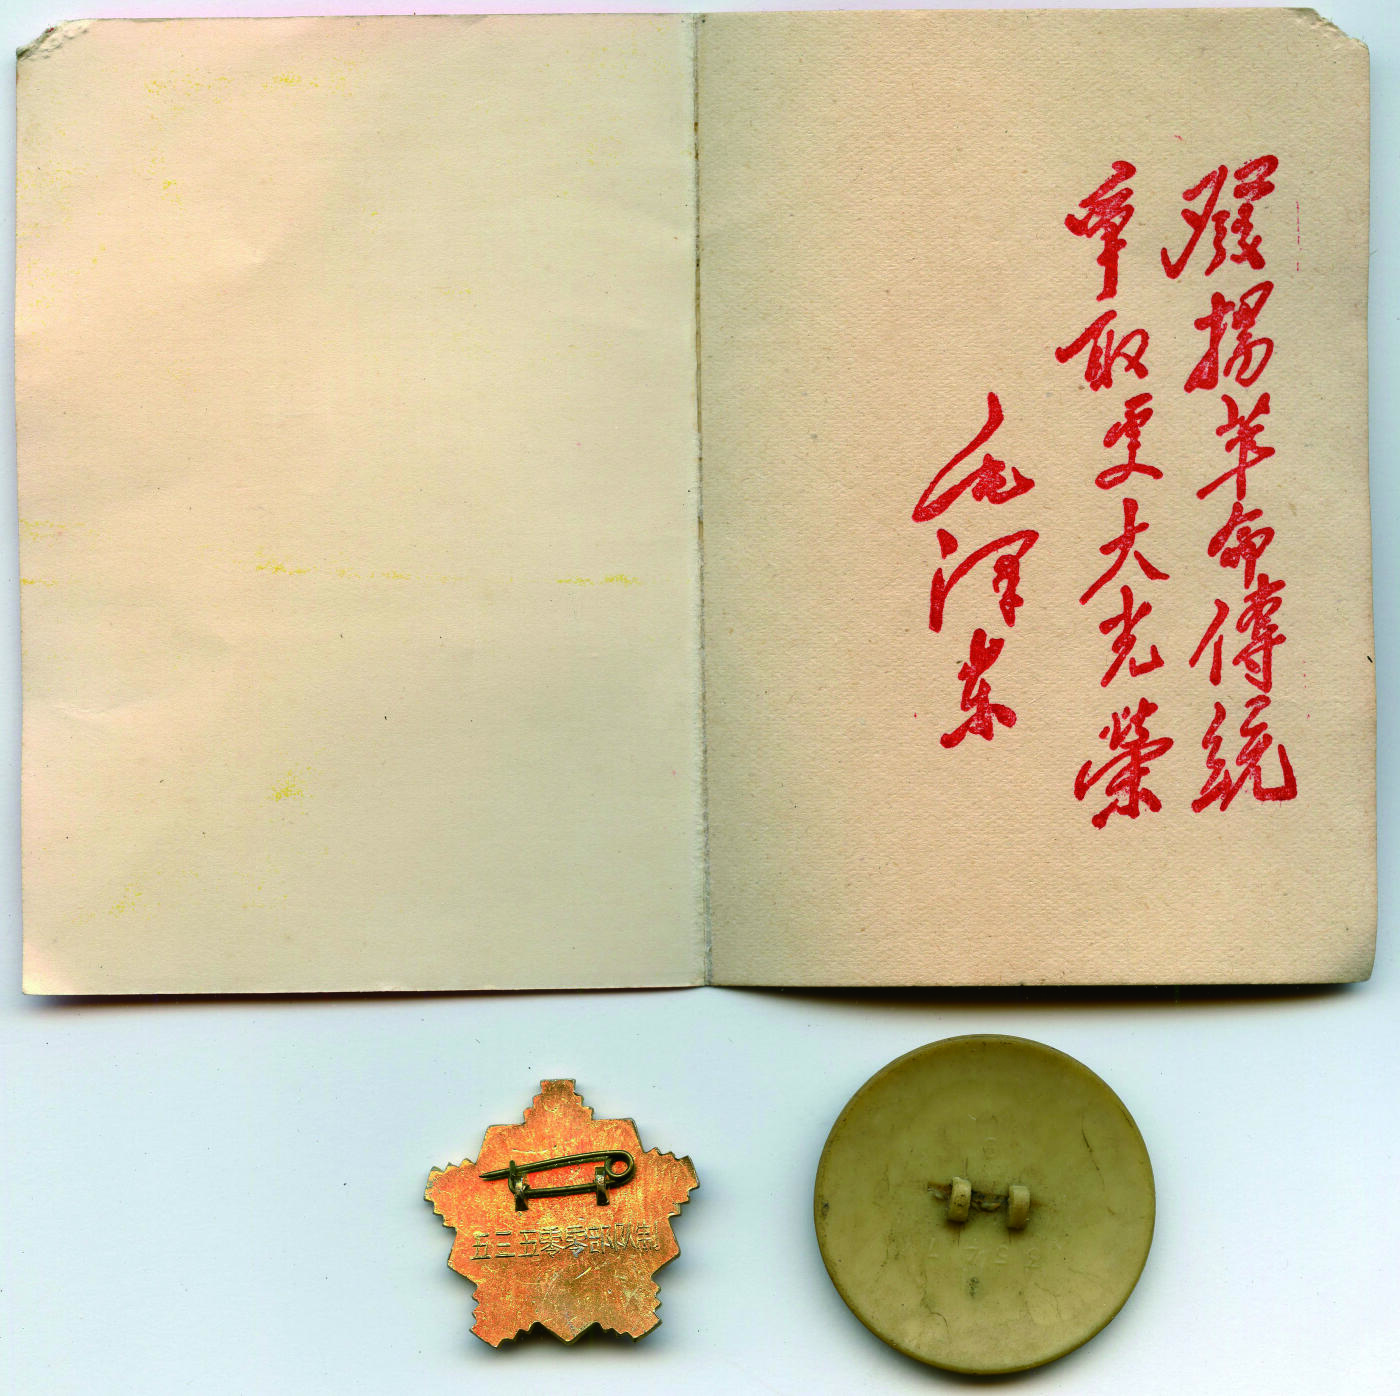 發揚革命傳統
爭取更大光榮
毛澤東
五三五零零部队制